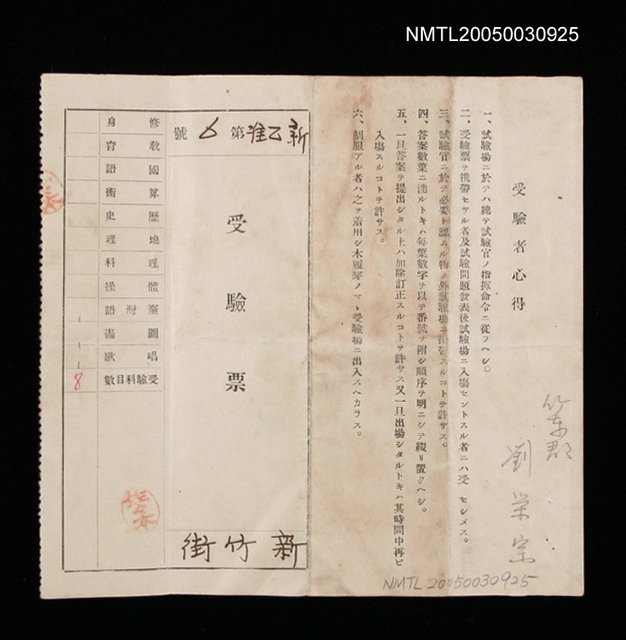 NMTL20050030925
受驗者心得
一、試驗場ニ於テハ總テ試驗官ノ指揮命令ニ從フヘシ。
二、受驗票ヲ携帶セサル者及試驗問題發表後試驗場ニ入場セントスル者ニハ受 セシメス。
三、試驗官ニ於テ必要ト認ムル物ノ外試驗場ニ携帶スルコトヲ許サス。
四、答案數葉ニ渉ルトキハ每葉數字ヲ以テ番號ヲ附シ順序ヲ明ニシテ綴リ置クヘシ。
五、一旦答案ヲ提出シタル上ハ加除訂正スルコトヲ許サス又一旦出場シタルトキハ其時間中再ヒ
入場スルコトヲ許サス。
六、制服アル者ハ之ヲ着用シ木履等ノマヽ受驗場ニ出入スヘカラス。
劉榮宗
新乙准第6號
受驗票
新竹街
修身
敎育
國語
算術
歷史
地理
理科
體操
臺灣語
圖畫
唱歌
受驗科目數
1
1
1
8
NMTL 20050030925